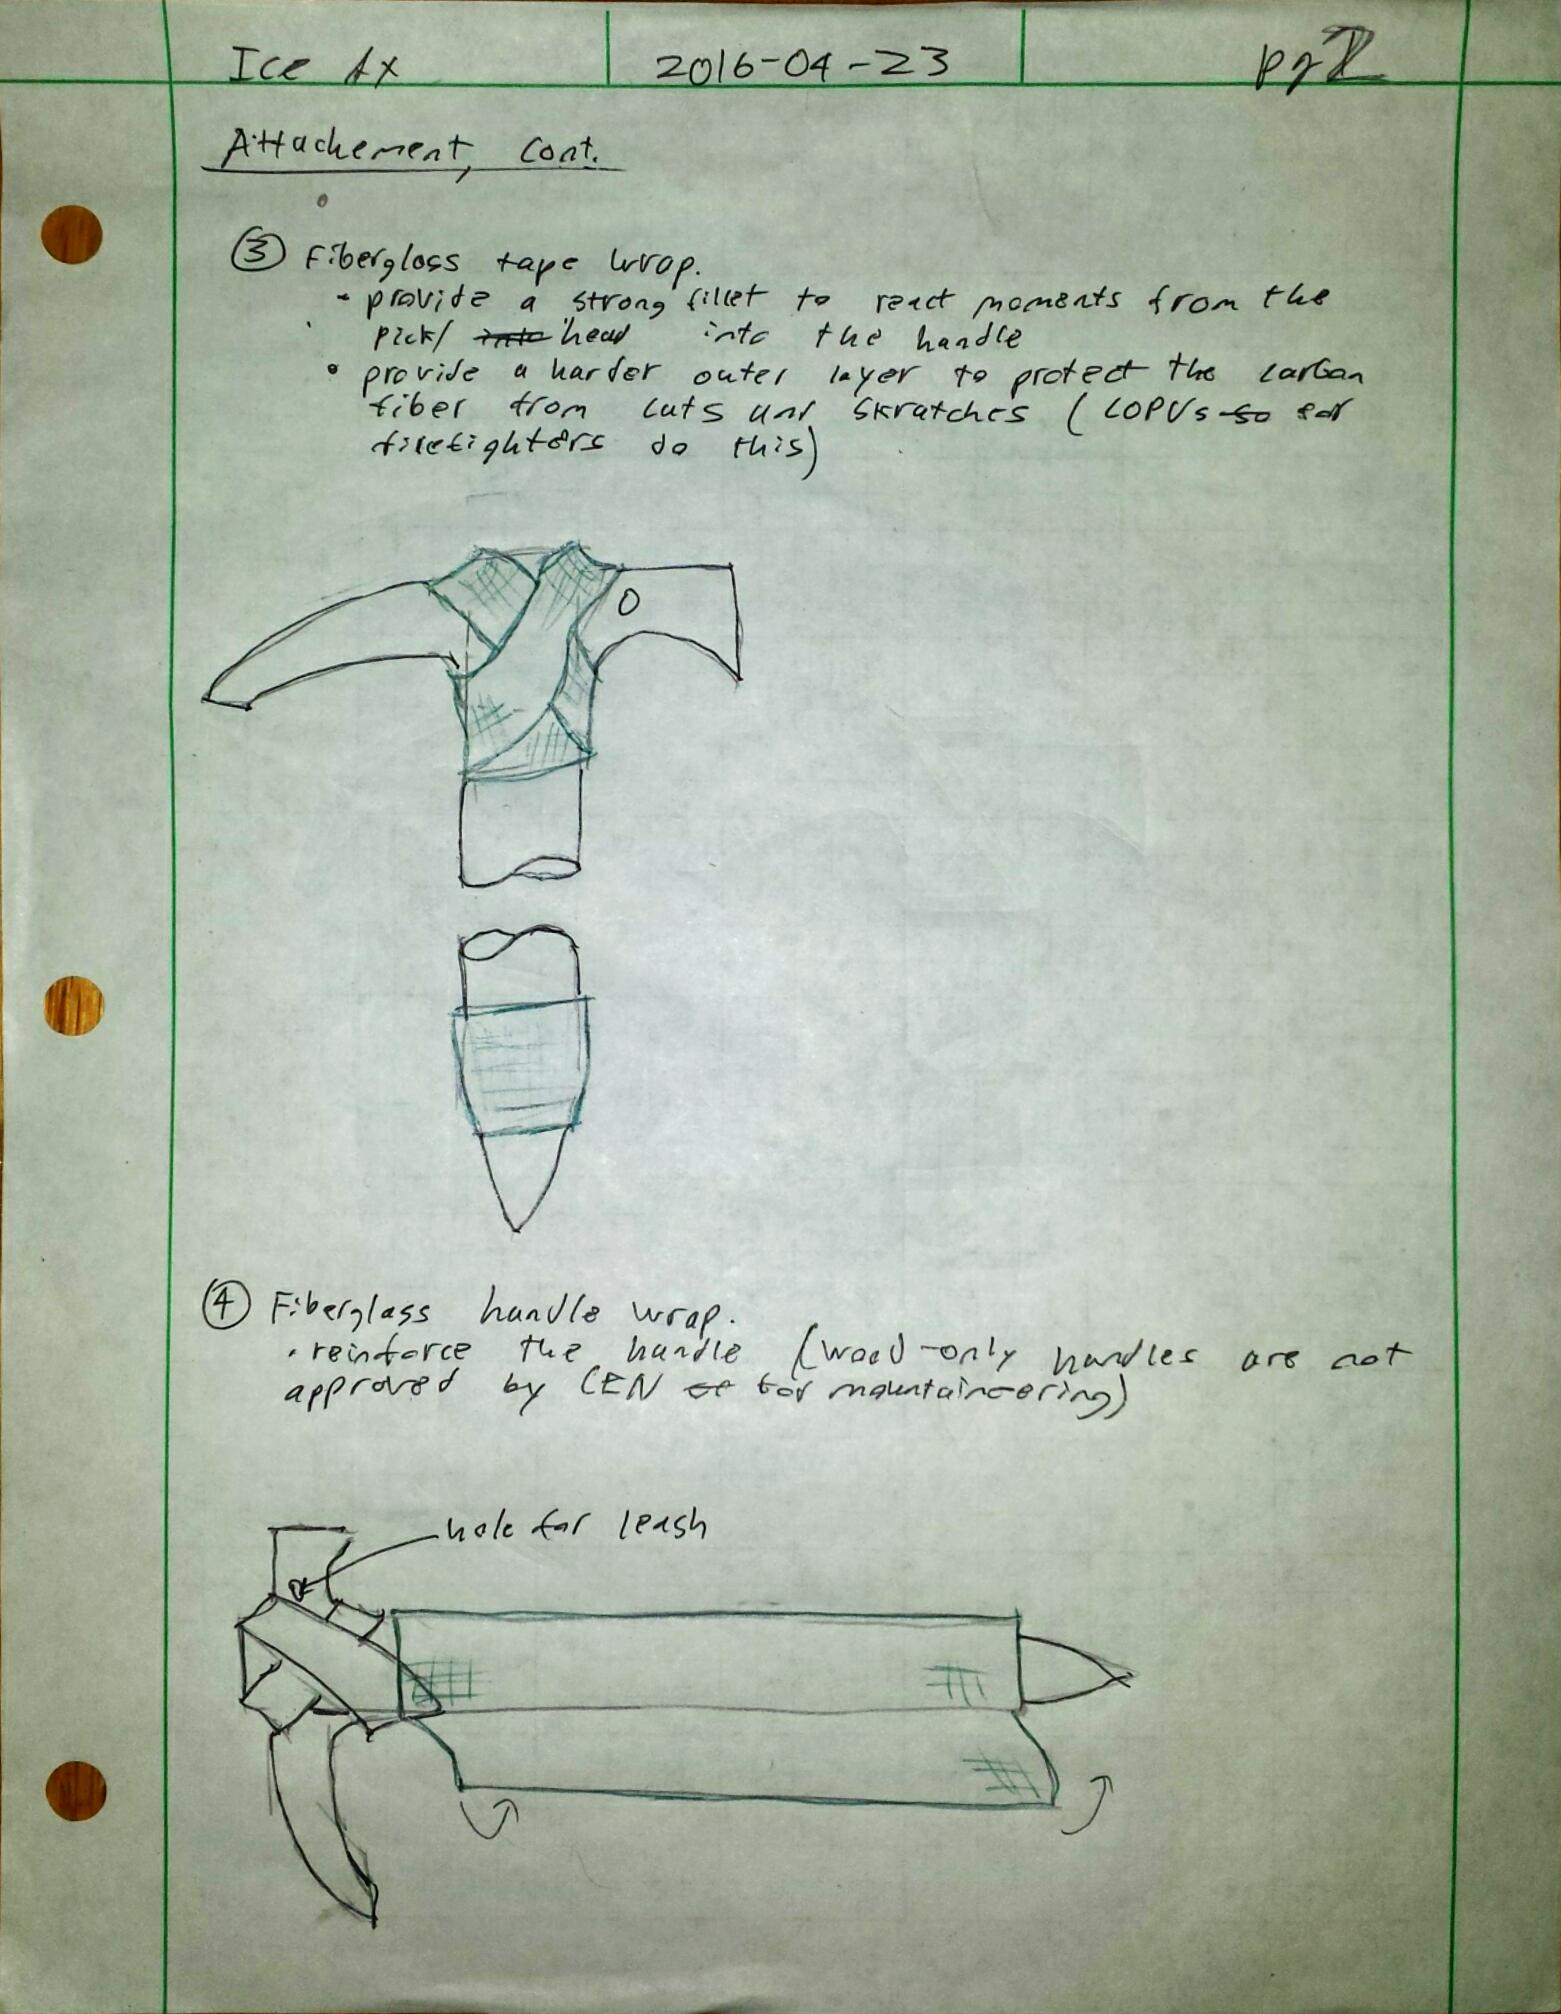 Ice Ax 2016-04-23 pg 2
Attachement, Cont.
③ Fiberglass tape wrap.
• provide a strong fillet to react moments from the
pick/ into head into the handle
• provide a harder outer layer to protect the carbon
fiber from cuts and skratches (COPVs so for
firefighters do this)
④ Fiberglass handle wrap.
• reinforce the handle (wood-only handles are not
approved by CEN for mountaineering)
hole for leash